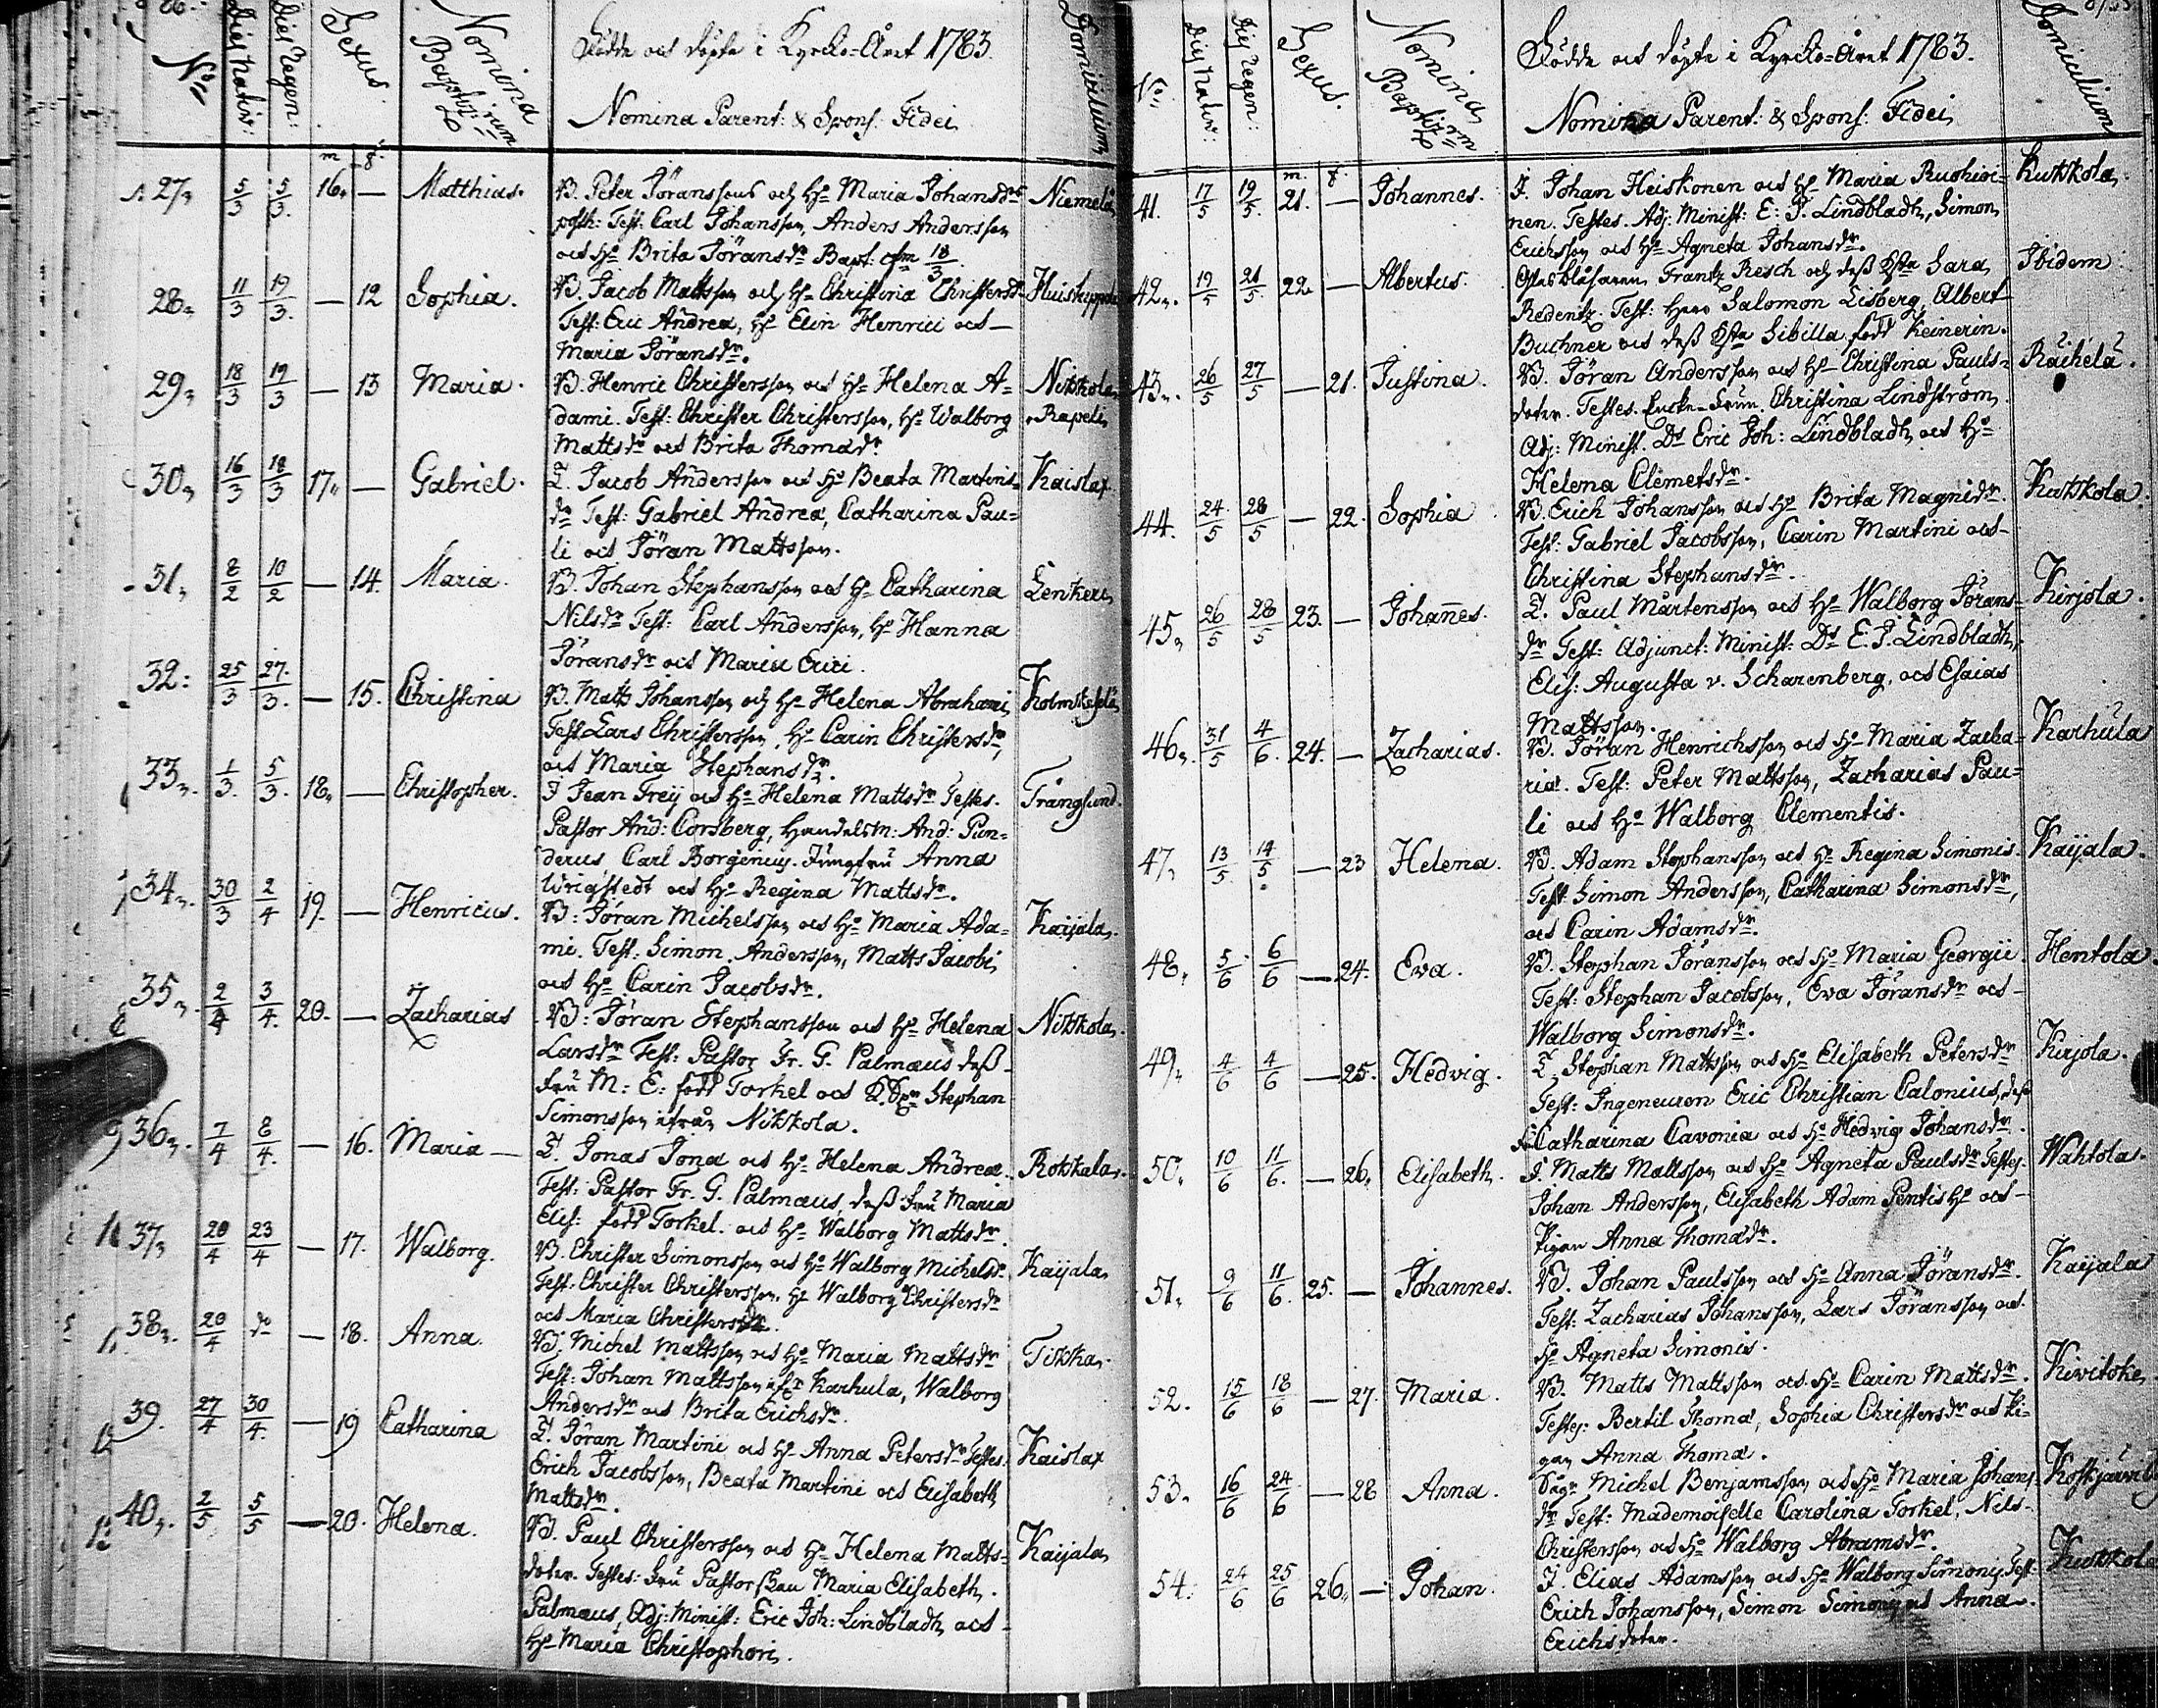 No
Dies Nativ:
Dies Regen:
Sexus.
Nomina Baptizm
Födde och döpte i Kyrcko-Året 1783.
Nomina Parent: & Spons: Fidei
Domicilium
m f.
27. 5/3 5/3. 16. — Matthias. B. Peter Jöranssons och H: Maria Johansdr Niemelä
posth: Test: Carl Johansson, Anders Andersson
och H: Brita Jöransdr Bapt: cfm 18/3
28. 11/3 19/3. — 12 Sophia. B. Jacob Mattsson och H: Christina Christersdr
Test: Eric Andreæ, H: Elin Henrici och
Maria Jöransdr.
29. 18/3 19/3 — 13 Maria. B. Henric Christersson och H: Helena A= Nikkola
dami. Test: Christer Christersson, H: Walborg Rapeli
Mattsdr och Brita Thomædr
30. 16/3 18/3 17. — Gabriel. T. Jacob Andersson och H: Beata Martins= Kaislax
dr Test: Gabriel Andreæ, Catharina Pau=
li och Jöran Mattsson.
31. 8/2 10/2 — 14. Maria. B. Johan Stephansson och H: Catharina Lenkeri
Nilsdr Test: Carl Andersson, H: Hanna
Jöransdr och Maria Erici.
32: 25/3 27/3. — 15. Christina B. Matts Johansson och H: Helena Abrahami
Test: Lars Christersson, H: Carin Christersdr,
och Maria Stephansdr.
33. 1/3. 5/3. 18. — Christopher. I Jean Frey och H: Helena Mattsdr Testes. Trångsund.
Pastor And: Corsberg, Handelsm: And: Pun=
derus, Carl Borgenius. Jungfru Anna
Wrigstedt och H: Regina Mattsdr.
34. 30/3 2/4 19. — Henricus. B: Jöran Michelsson och H: Maria Ada= Kaijala
mi. Test: Simon Andersson, Matts Jacobi,
och H: Carin Jacobsdr.
35. 2/4 3/4. 20. — Zacharias B: Jöran Stephansson och H: Helena Nikkola.
Larsdr Test: Pastor Fr. G. Palmæus dess
fru M: E: född Torkel och Stephan
Simonsson ifrån Nikkola.
36. 7/4 8/4. — 16. Maria — T. Jonas Jona och H: Helena Andreæ. Rokkala.
Test: Pastor Fr. G. Palmæus, dess fru Maria
Elis: född Torkel. och H: Walborg Mattsdr.
37. 20/4 23/4 — 17. Walborg. B. Christer Simonsson och H: Walborg Michelsdr. Kaijala
Test: Christer Christersson, H: Walborg Christersdr
och Maria Christersdr.
38. 20/4 do — 18. Anna. B. Michel Mattsson och H: Maria Mattsdr Tikka.
Test: Johan Mattsson ifr Karhula, Walborg
Andersdr och Brita Erichsdr.
39. 27/4 30/4. — 19 Catharina T. Jöran Martini och H: Anna Petersdr Testes: Kaislax
Erich Jacobsson, Beata Martini och Elisabeth
Mattsdr.
40. 2/5 5/5 — 20. Helena. B. Paul Christersson och H: Helena Matts= Kaijala
doter. Testes: Fru Pastorskan Maria Elisabeth
Palmæus, Adj: Minist: Eric Joh: Lindbladh, och
H: Maria Christophori.
No.
Dies Nativ:
Dies Regen:
Sexus.
Nomina Baptizm
Födde och döpte i Kyrcko-Året 1783.
Nomina Parent: & Spons: Fidei
Domicilium
m. f.
41. 17/5 19/5. 21. — Johannes. I. Johan Heiskonen och H: Maria Ruohioi= Kukkola
nen. Testes. Adj: Minist: E: J. Lindbladh, Simon
Erichsson och H: Agneta Johansdr.
42. 19/5 21/5. 22. — Albertus. Glasblåsaren Frantz Resch och dess Sara Ibidem
Redentz. Test: Herr Salomon Lisberg, Albert
Buchner och dess Sibilla född Keinerin.
43. 26/5 27/5 — 21. Justina. B. Jöran Andersson och H: Christina Pauls=
doter. Testes. Enke-Frun Christina Lindström,
Adj: Minist. Ds Eric Joh: Lindbladh och H:
Helena Clemetsdr.
44. 24/5 28/5 — 22. Sophia B. Erich Johansson och H: Brita Magnidr. Kukkola.
Test: Gabriel Jacobsson, Carin Martini och
Christina Stephansdr.
45. 26/5 28/5 23. — Johannes. T. Paul Mårtensson och H: Walborg Jörans= Kirjola.
dr Test: Adjunct: Minist: Ds E. J. Lindbladh,
Elis: Augusta v. Scharenberg, och Esaias
Mattsson.
46. 31/5 4/6. 24. — Zacharias. B. Jöran Henrichsson och H: Maria Zacha= Karhula
riæ. Test: Peter Mattsson, Zacharias Pau=
li och H: Walborg Clementis.
47. 13/5. 14/5 — 23 Helena. B. Adam Stephansson och H: Regina Simonis. Kaijala.
Test: Simon Andersson, Catharina Simonsdr,
och Carin Adamsdr.
48. 5/6 6/6 — 24. Eva. B. Stephan Jöransson och H: Maria Georgii. Hentola.
Test: Stephan Jacobsson, Eva Jöransdr och
Walborg Simonsdr.
49. 4/6 4/6 — 25. Hedvig. T. Stephan Mattsson och H: Elisabeth Petersdr Kirjola.
Test: Ingeneuren Eric Christian Calonius, dess
Catharina Cavonia och H: Hedvig Johansdr.
50. 10/6 11/6. — 26. Elisabeth. I. Matts Mattsson och H: Agneta Paulsdr Testes. Wahtola.
Johan Andersson, Elisabeth Adam Pentis H: och
Pigan Anna Thomædr.
51. 9/6 11/6. 25. — Johannes. B. Johan Paulsson och H: Anna Jöransdr. Kaijala
Test: Zacharias Johansson, Lars Jöransson och
H: Agneta Simonis.
52. 15/6 18/6 — 27. Maria. B. Matts Mattsson och H: Carin Mattsdr. Kivitoke
Testes: Bertil Thomæ, Sophia Christersdr och Pi=
gan Anna Thomæ.
53. 16/6 24/6 — 28 Anna. Michel Benjamsson och H: Maria Johans
dr Test: Mademoiselle Carolina Torkel, Nils
Christersson och H: Walborg Abramsdr.
54. 24/6 25/6 26. — Johan. I. Elias Adamsson och H: Walborg Simonis Test: Kukkola
Erich Johansson, Simon Simonis och Anna
Erichsdoter.